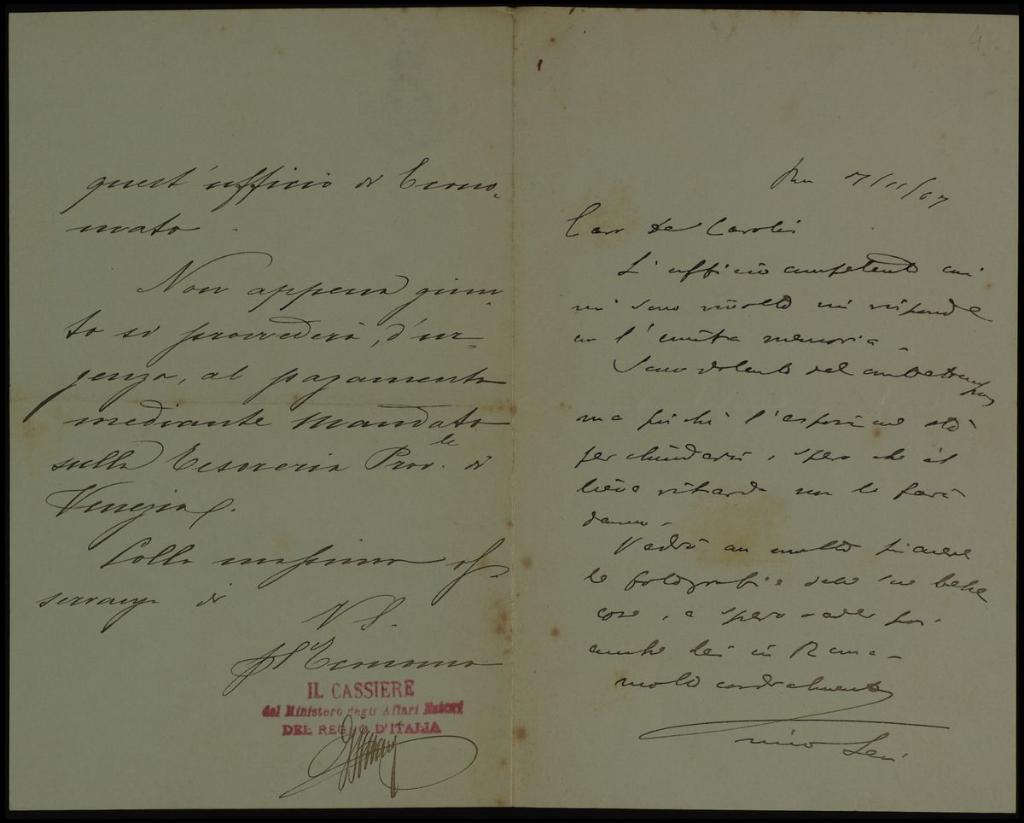 quest'ufficio di Econo-
mato.
Non appena giun-
to si provvederà, d'ur-
genza, al pagamento
mediante mandato
sulla Tesoreria Prov.le di
Venezia.
Colla massima os-
servanza di
V. S.
L'Economo
IL CASSIERE
del Ministero degli Affari Esteri
DEL REGNO D'ITALIA
4
7/11/07
Caro De Carolis
L'ufficio competente cui
mi sono rivolto mi risponde
con l'unita memoria.
Sono dolente del
ma poiché l'esposizione sta
per chiudersi, spero che il
lieve ritardo non le farà
danno.
Vedrò con molto piacere
le fotografie delle sue belle
cose, e spero veder poi
anche lei in Roma.
molto cordialmente